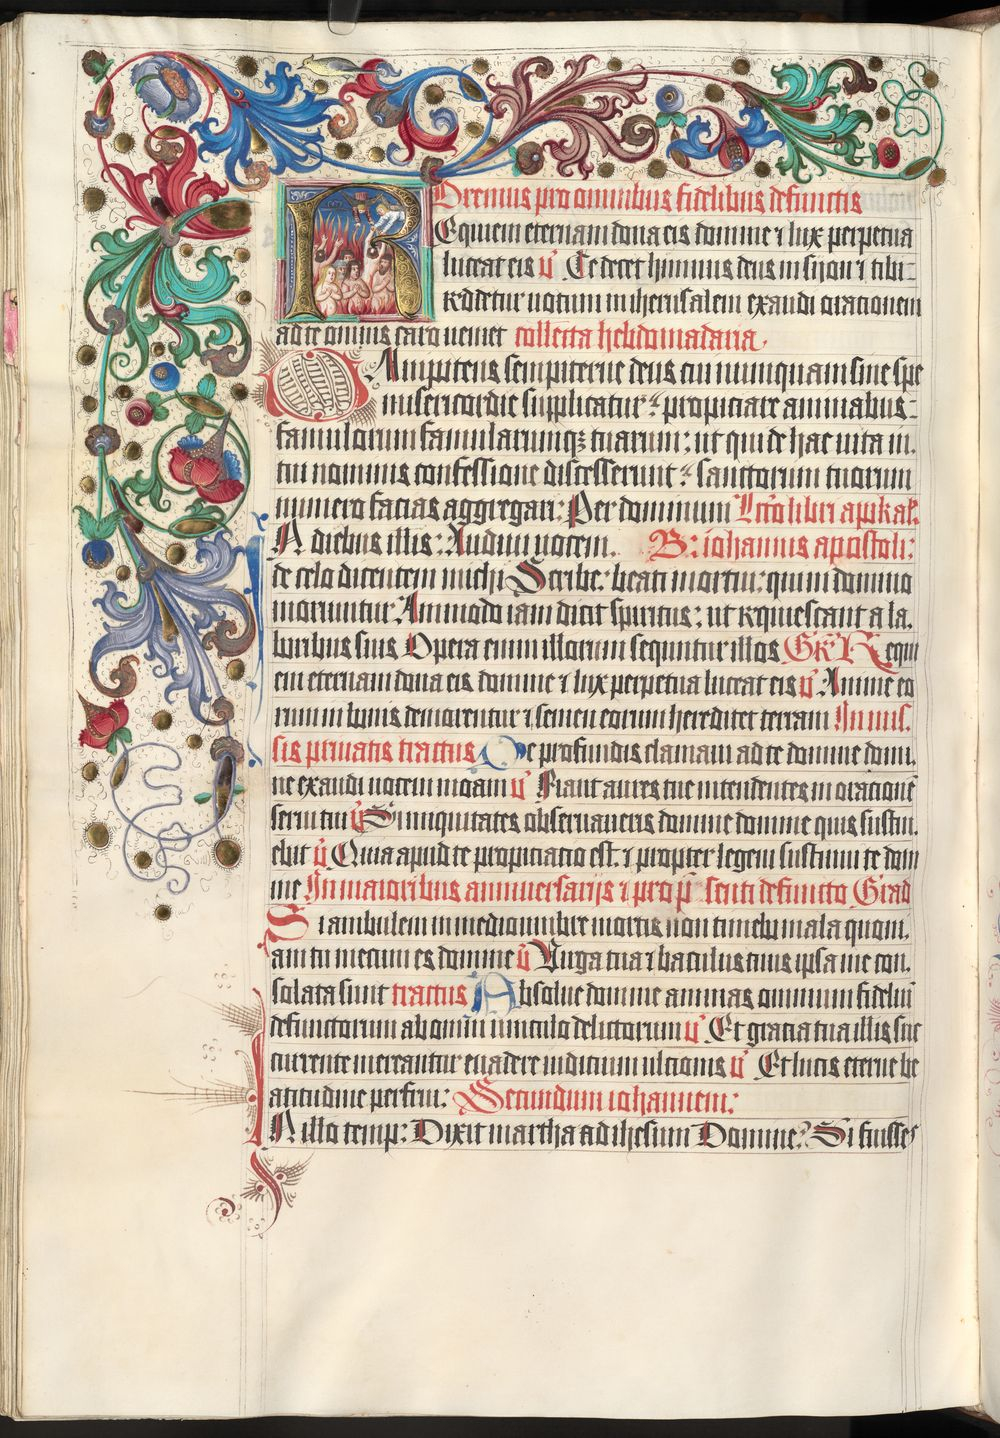 Oremus pro omnibus fidelibus defunctis
Requiem eternam dona eis domine ⁊ lux perpetua
luceat eis v̄ Te decet himnus deus in sijon ⁊ tibi-
reddetur uotum in iherusalem exaudi orationem
ad te omnis caro ueniet collecta hebdomadaria.
Omnipotens sempiterne deus cui numquam sine spe
misericordie supplicatur: propiciare animabus-
famulorum famularumq; tuarum: ut qui de hac uita in.
tui nominis confessione discesserunt: sanctorum tuorum
numero facias aggregari: Per dominum L̄cō libri apokal.
In diebus illis: Audiui uocem. B: iohannis apostoli:
de celo dicentem michi Scribe: beati mortui: qui in domino
moriuntur Ammodo iam dicit spiritus: ut requiescant a la.
boribus suis Opera enim illorum sequuntur illos Gr̄ Requi
em eternam dona eis domine ⁊ lux perpetua luceat eis v̄ Anime eo
rum in bonis demorentur ⁊ semen eorum hereditet terram In mis.
sis priuatis tractus De profundis clamaui ad te domine domi.
ne exaudi uocem meam v̄ Fiant aures tue intendentes in orationē
serui tui v̄ Si iniquitates obseruaueris domine domine quis sustin.
ebit v̄ Quia apud te propiciacio est. ⁊ propter legem sustinui te domi
ne In maioribus anniuersarijs ⁊ pro p̄senti defuncto Grad
Si ambulem in medio umbre mortis non timebo mala quoni.
am tu mecum es domine v̄ Uirga tua ⁊ baculus tuus ipsa me con.
solata sunt tractus Absolue domine animas omnium fideliū
defunctorum ab omni uinculo delictorum v̄ Et gracia tua illis suc
currente mereantur euadere iudicium ultionis v̄ Et lucis eterne be
atitudine perfrui: Secundum iohannem:
In illo temp: Dixit martha ad ihesum Domine: Si fuisses